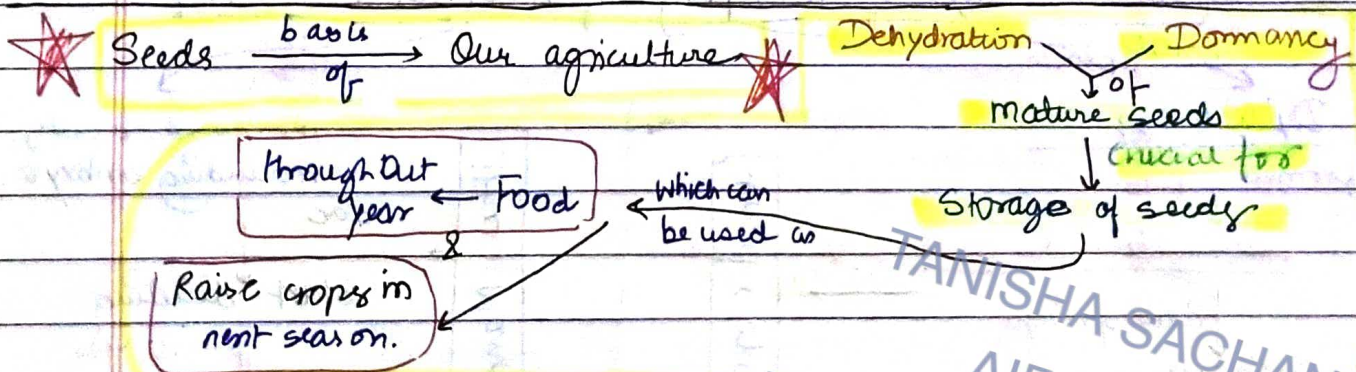 Seeds basis of → Our agriculture
Dehydration Dormancy
of
mature seeds
crucial for
Storage of seeds
which can
be used as
Food ← throughout
year
&
Raise crops in
next season.
TANISHA SACHAN